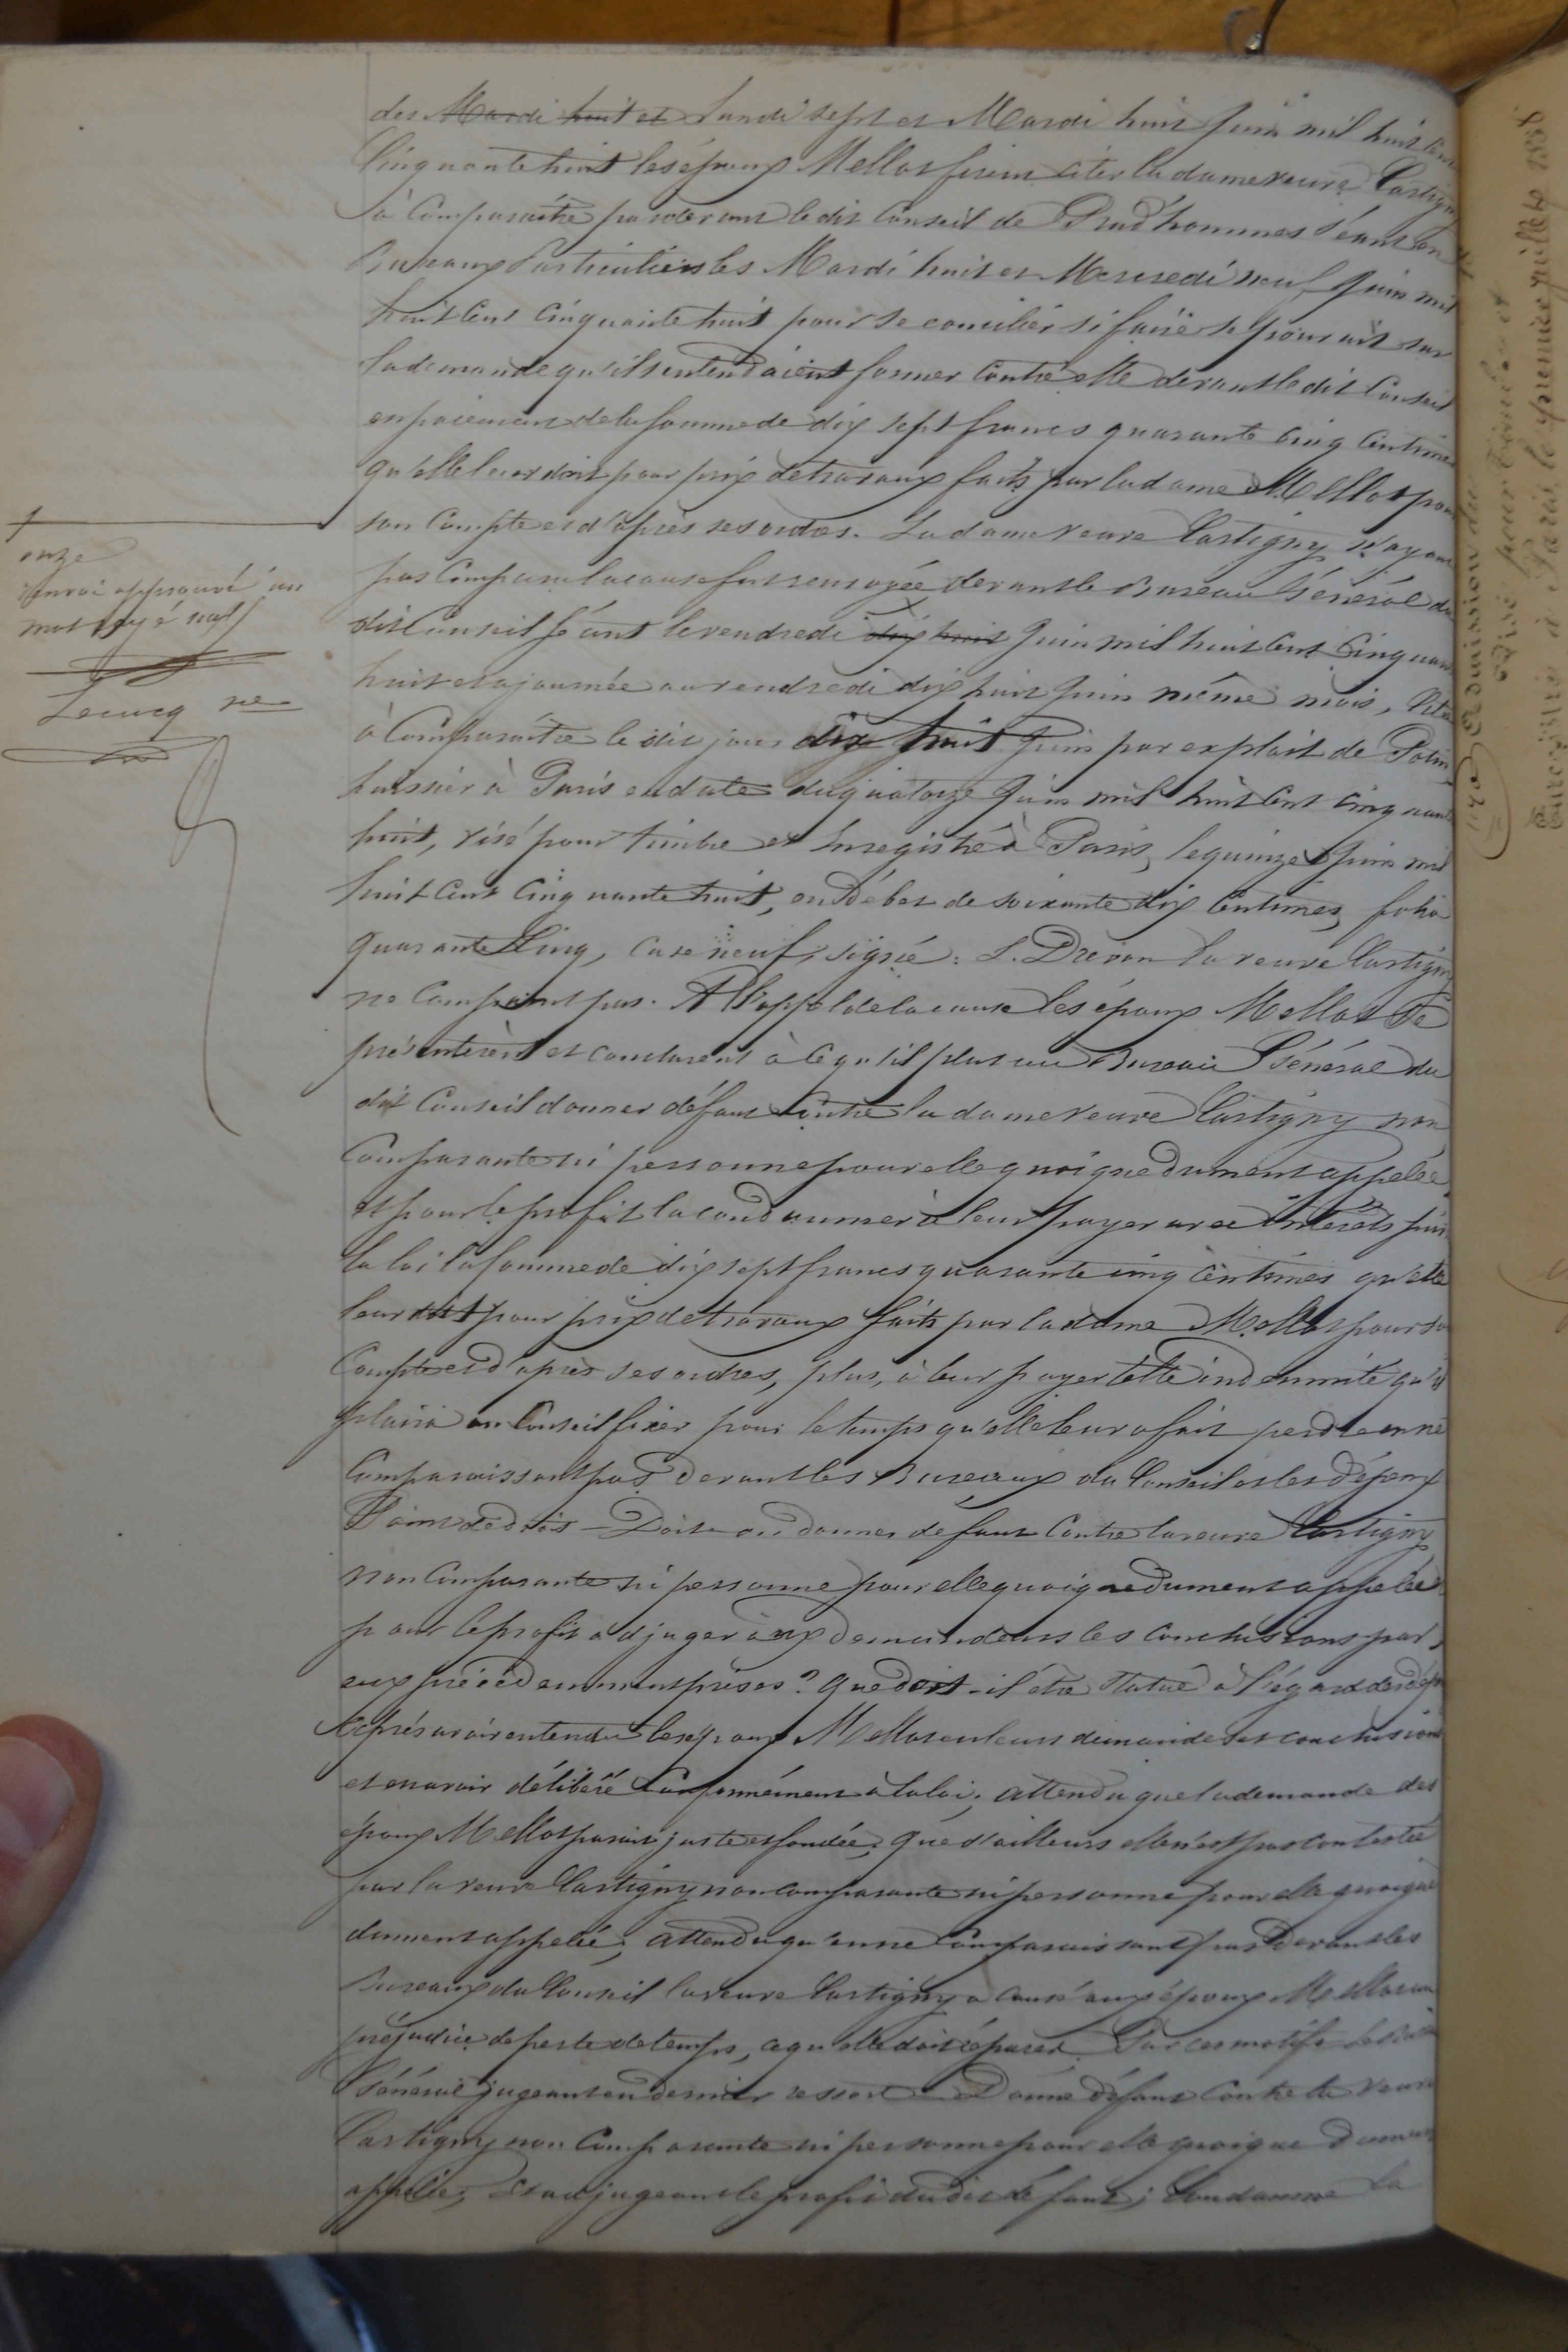 des Mardi huit et Lundi sept et Mardi huit Juin mil huit cent
Cinquante huit les époux Mellot firent citer la dame veuve Lartigny
à Comparaître par devant le dit Conseil de Prud'hommes Séant en
Bureaux Particuliers les Mardi huit et Mercredi neuf Juin mil
huit Cent Cinquante huit pour se concilier si faire se pouvait sur
la demande qu'ils entendaient former Contre elle devant le dit Conseil
en paiement de la somme de dix sept francs quarante Cinq Centimes
qu'elle leur doit pour prix de travaux faits par la dame Mellot pour
son Compte et d'après ses ordres. La dame veuve Lartigny n'ayant
pas Comparu la cause fut renvoyée devant le Bureau Général du
dit Conseil Séant le vendredi dix huit Juin mil huit Cent Cinquante
huit et ajournée au vendredi dix huit Juin même mois, Citée
à Comparaître le dit jour dix huit Juin par exploit de
huissier à Paris en date du quatorze Juin mil huit Cent Cinquante
huit, visé pour timbre et Enregistré à Paris, le quinze Juin mil
huit Cent Cinquante huit, en Débet de soixante dix Centimes, folio
quarante Cinq, Case neuf, signé: la veuve Lartigny
ne Comparut pas. A l'appel de la cause les époux Mellot Se
présentèrent et conclurent à ce qu'il plut au Bureau Général du
dit Conseil donner défaut Contre la dame veuve Lartigny non
Comparante ni personne pour elle quoique dument appelée
et pour le profit la condamner à leur payer avec Intérêts suivant
la loi la somme de dix sept francs quarante cinq Centimes qu'elle
leur doit pour prix de travaux faits par la dame Mellot pour son
Compte et d'après ses ordres, plus, à leur payer telle indemnité qu'il
plaira au Conseil fixer pour le temps qu'elle leur a fait perdre en ne
Comparaissant pas Devant les Bureaux du Conseil et les Dépens
Point de droit – Doit-on donner défaut Contre la veuve Lartigny
non Comparante ni personne pour elle quoique dument appelée
pour le profit adjuger aux demandeurs les Conclusions par
eux précédemment prises? Que doit-il être Statué à l'égard des dépens
Après avoir entendu les époux Mellot en leurs demandes et conclusions
et en avoir délibéré Conformément à la loi; attendu que la demande des
époux Mellot parait juste et fondée; Que d'ailleurs elle n'est pas Contestée
par la veuve Lartigny non Comparante ni personne pour elle quoique
dument appelée; attendu qu'en ne Comparaissant pas Devant les
Bureaux du Conseil la veuve Lartigny a causé aux époux Mellot un
préjudice de perte de temps, ce qu'elle doit réparer. Par ces motifs le Bureau
Général jugeant en dernier ressort – Donne défaut Contre la veuve
Lartigny non Comparante ni personne pour elle quoique Dument
appelée; Et adjugeant le profit du dit défaut; Condamne la
onze
renvoi approuvé un
mot rayé nul
Lecucq